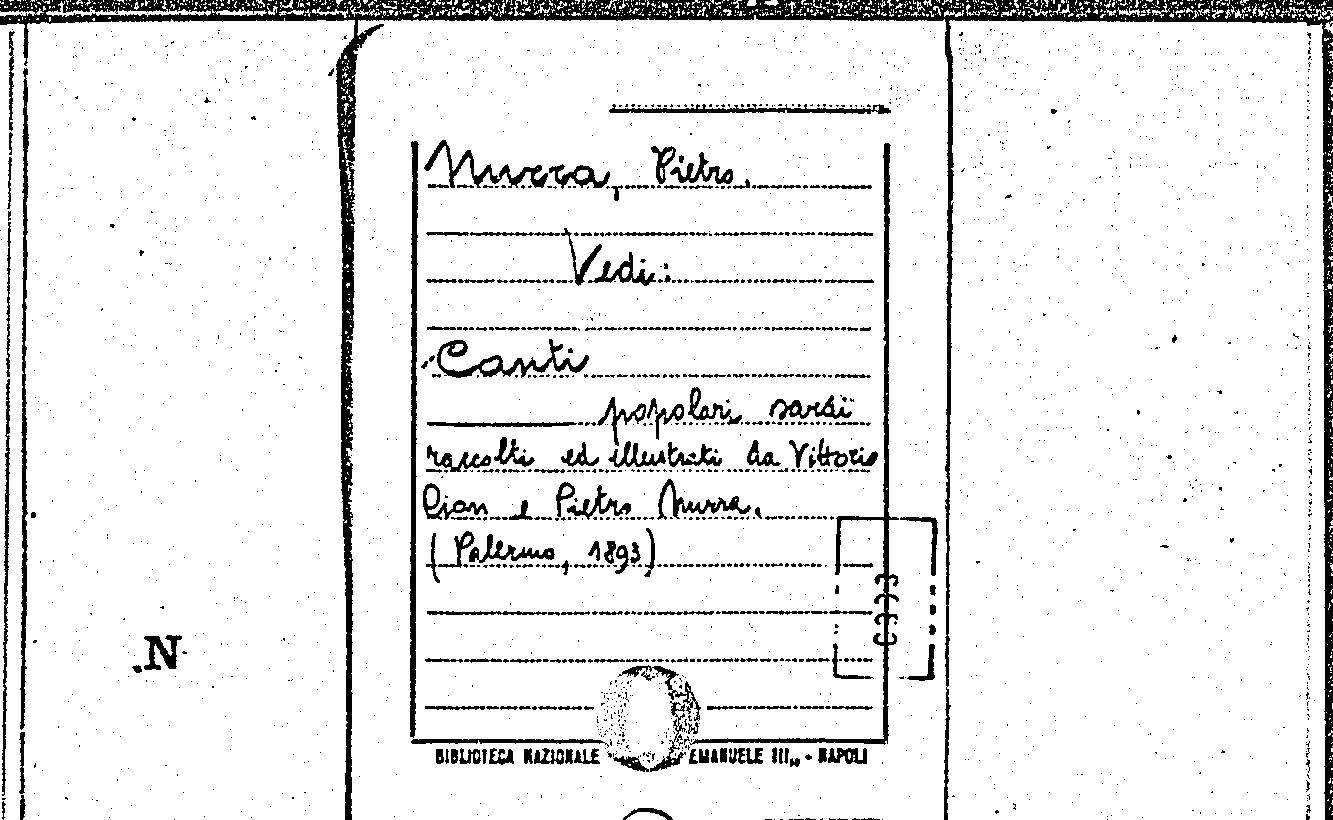 Nurra, Pietro.
Vedi:
Canti
popolari sardi
raccolti ed illustrati da Vittorio
Cian e Pietro Nurra.
(Palermo, 1893)
.N
BIBLIOTECA NAZIONALE EMANUELE III,, - NAPOLI